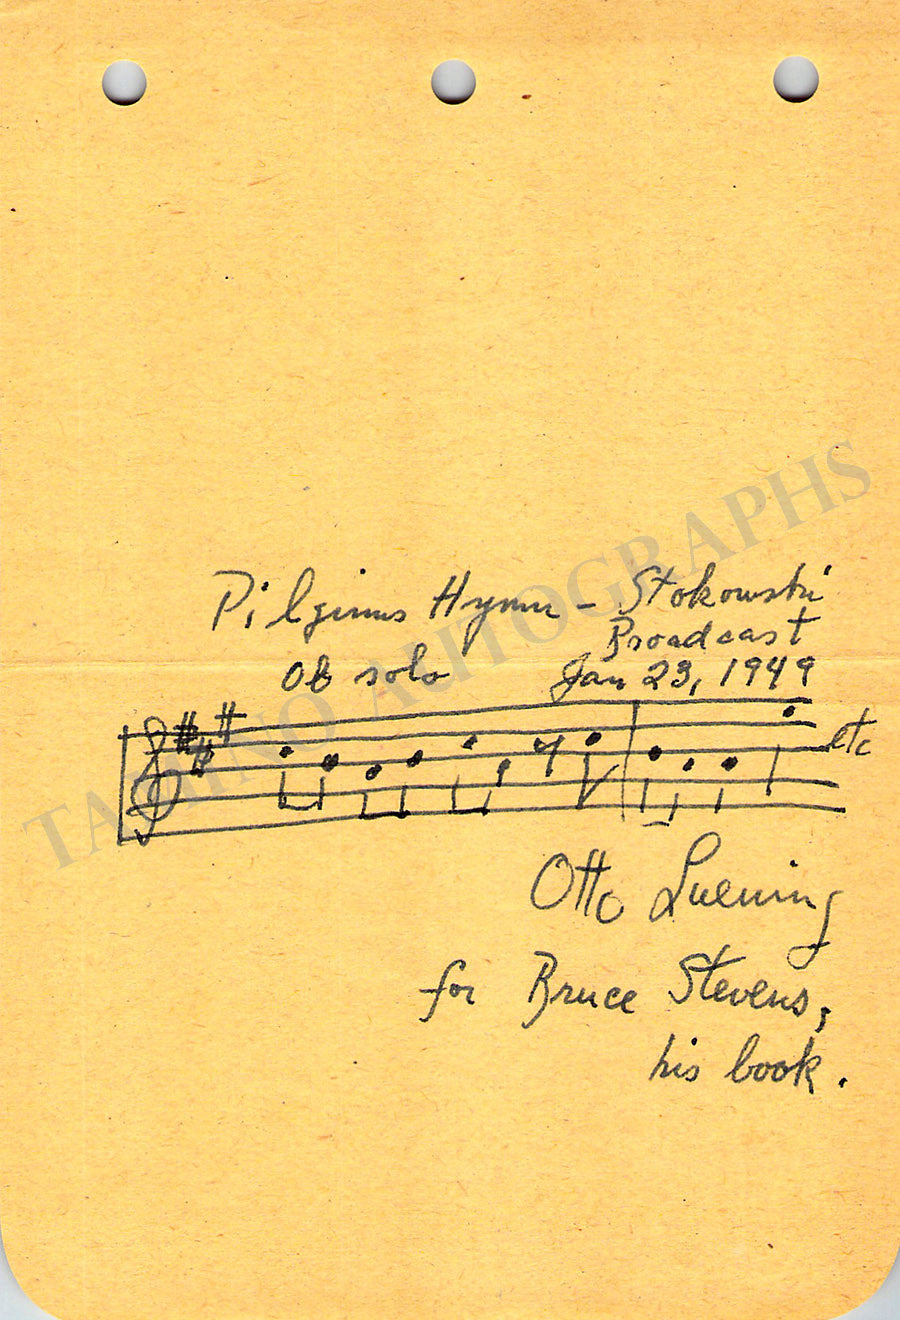 Pilgrims Hymn – Stokowski
Broadcast
Ob solo Jan 23, 1949
etc
Otto Luening
for Bruce Stevens,
his book.
TAMINO AUTOGRAPHS